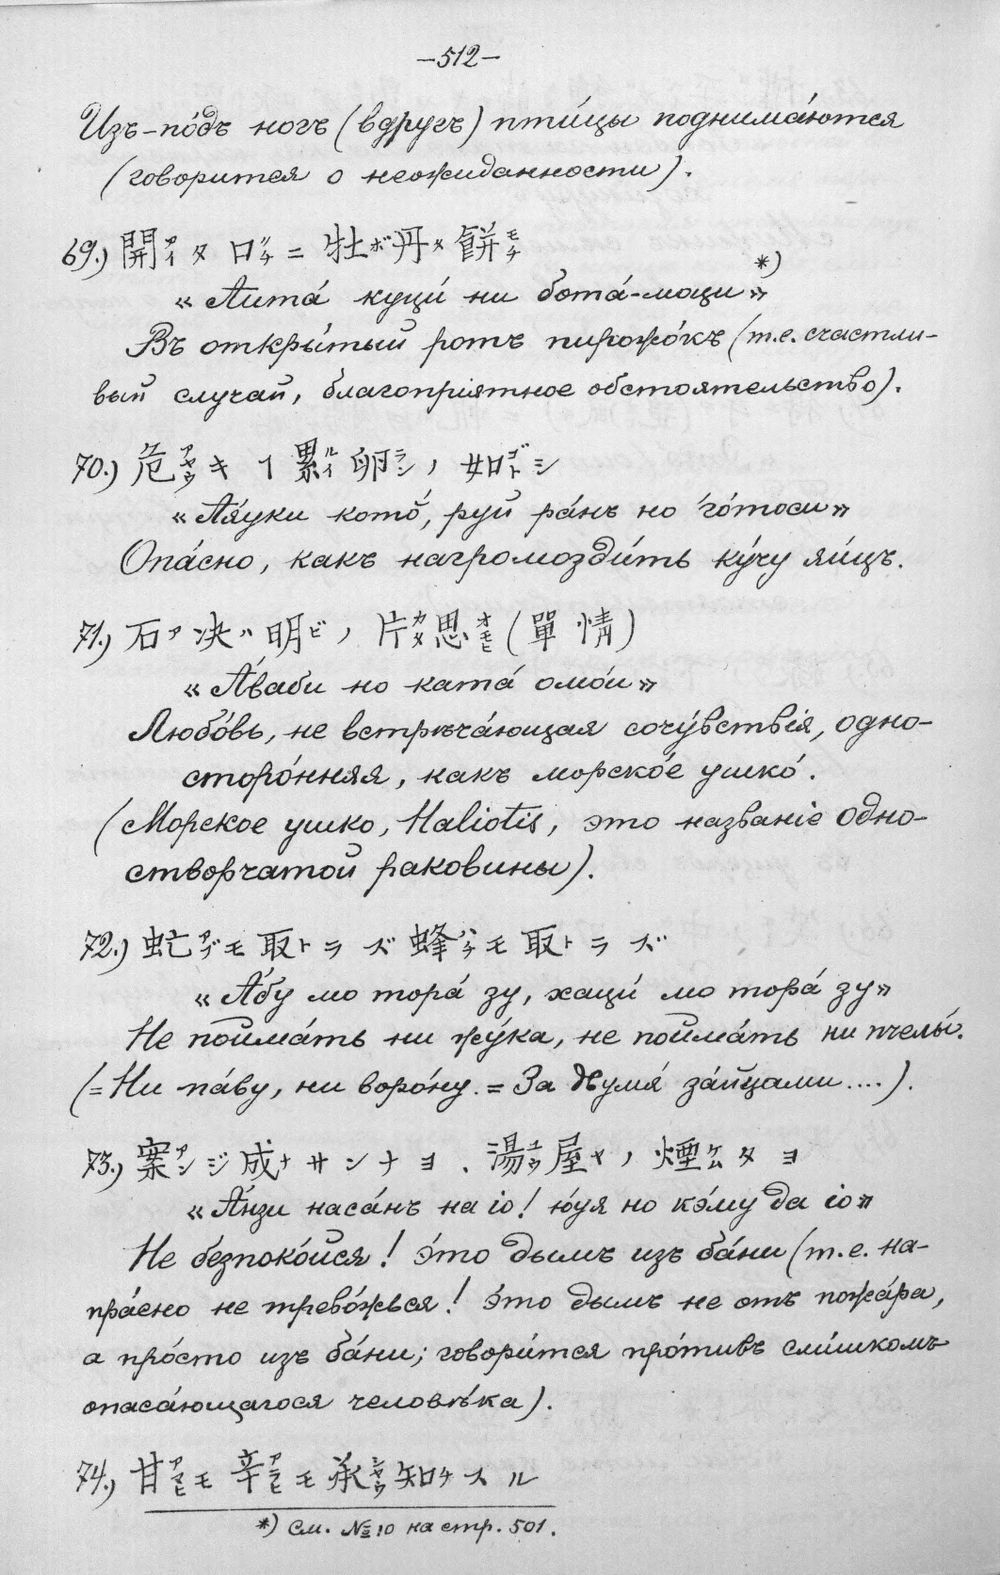 –512–
Изъ-по́дъ ногъ (вдругъ) пти́цы поднима́ются
(говорится о неожиданности).
69.) 開アイタ口クチニ牡ボ丹タ餅モチ
«Аита́ куци́ ни бота́-моци» *)
Въ откры́тый ротъ пирожо́къ (т.е. счастли-
вый случай, благопріятное обстоятельство).
70.) 危アヤウキヿ累ルイ卵ランノ如ゴトシ
«Ая́уки кото́, руй ра́нъ но го́тоси»
Опа́сно, какъ нагромозди́ть ку́чу яи́цъ.
71.) 石ア决ハ明ビノ片カタ思オモヒ(單情)
«А́ваби но ката́ омо́и»
Любо́вь, не встрѣча́ющая сочу́вствія, одно-
сторо́нняя, какъ морско́е ушко́.
(Морское ушко, Haliotis, это названіе одно-
створчатой раковины).
72.) 虻アブモ取トラズ蜂ハチモ取トラズ
«А́бу мо тора́ зу, хаци́ мо тора́ зу»
Не пойма́ть ни жу́ка, не пойма́ть ни пчелы́.
(=Ни па́ву, ни воро́ну. = За двумя́ за́йцами....).
73.) 案アンジ成ナサンナヨ、湯ユウ屋ヤノ煙ケムダヨ
«А́нзи наса́нъ на іо! ю́уя но кэ́му да іо»
Не безпоко́йся! э́то дымъ изъ ба́ни (т.е. на-
пра́сно не трево́жься! э́то дымъ не отъ пожа́ра,
а про́сто изъ ба́ни; говори́тся про́тивъ сли́шкомъ
опаса́ющагося человѣ́ка).
74.) 甘アマヒモ辛アラヒモ承シャウ知チスル
*) См. №10 на стр. 501.